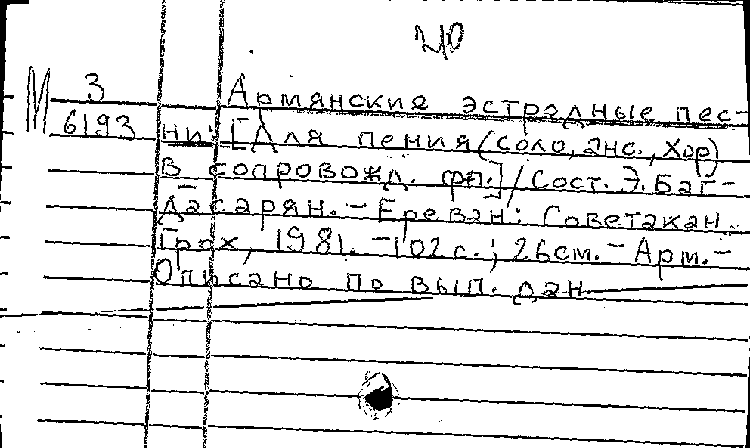 М 3 Армянские эстрадные пес-
6193 ни: [Для пения (соло, анс., хор)
в сопровожд. фп.] / Сост. Э. Баг-
дасарян. - Ереван: Советакан
Грох, 1981. - 102 с.; 26 см. - Арм. -
Описано по вып. дан.